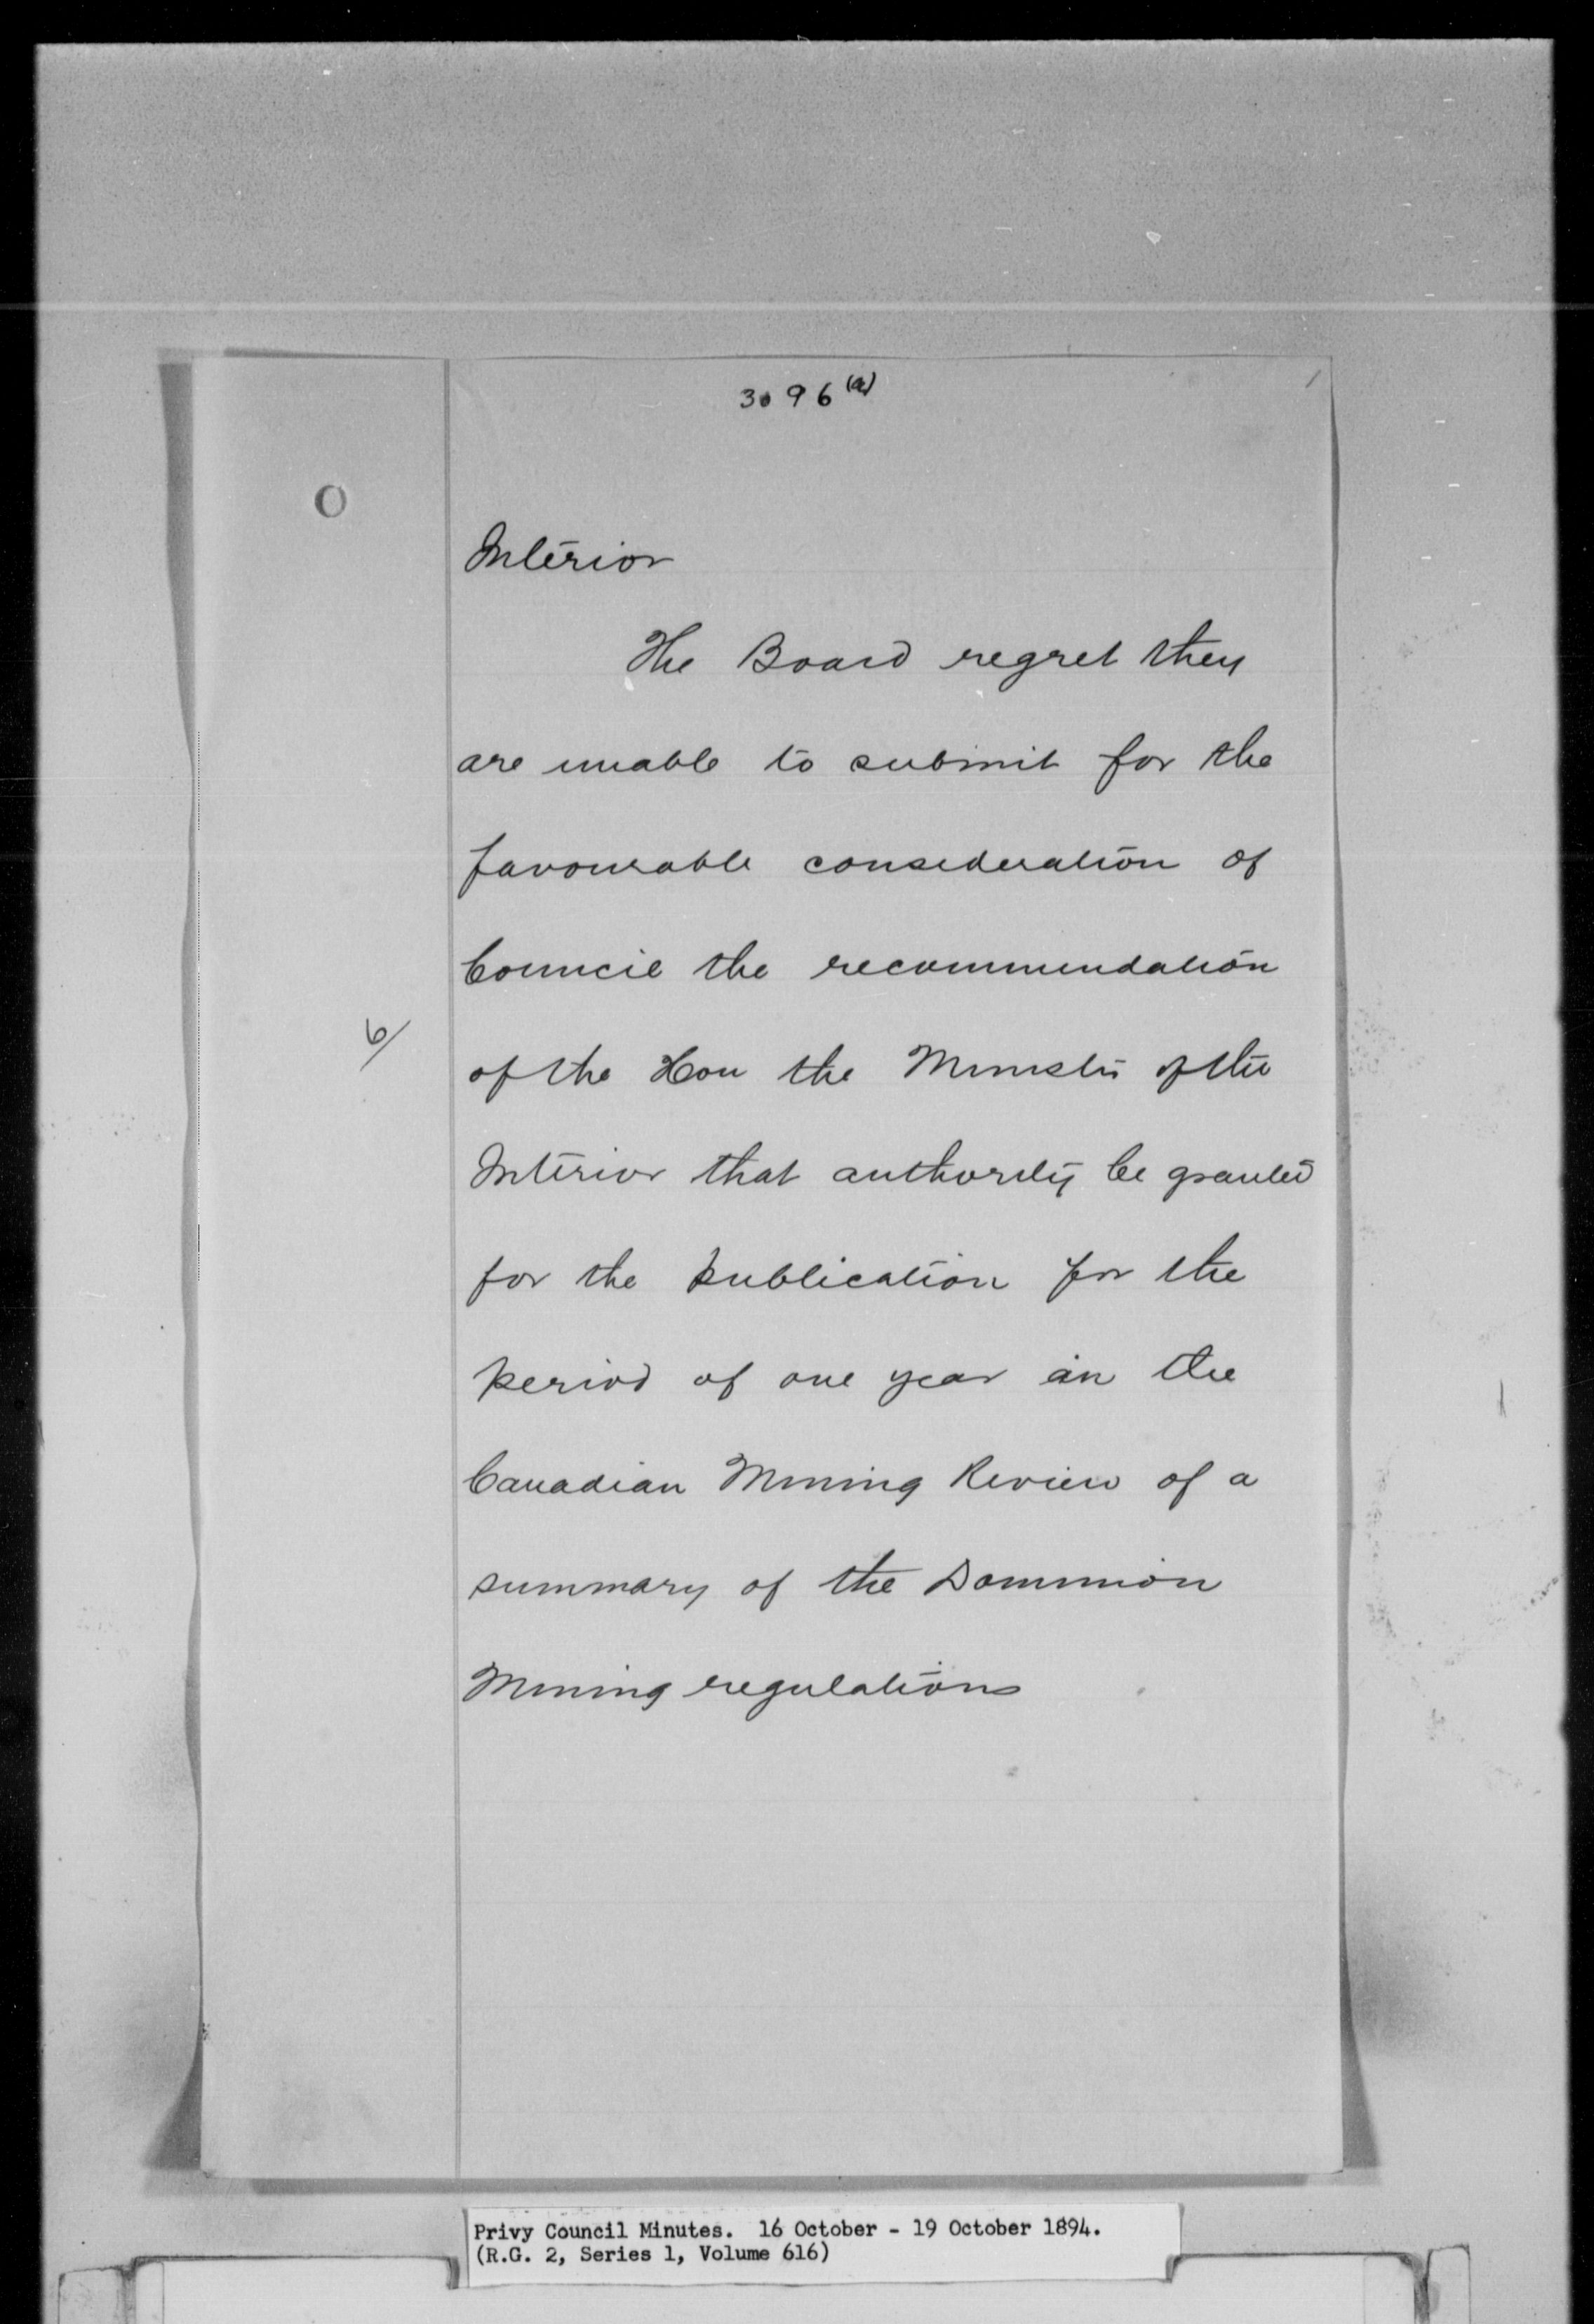 3096(a)
Interior
The Board regret they
are unable to submit for the
favourable consideration of
6/
Council the recommendation
of the Hon the Minister of the
Interior that authority be granted
for the publication for the
period of one year in the
Canadian Mining Review of a
summary of the Dominion
Mining regulations
Privy Council Minutes. 16 October - 19 October 1894.
(R.G. 2, Series 1, Volume 616)